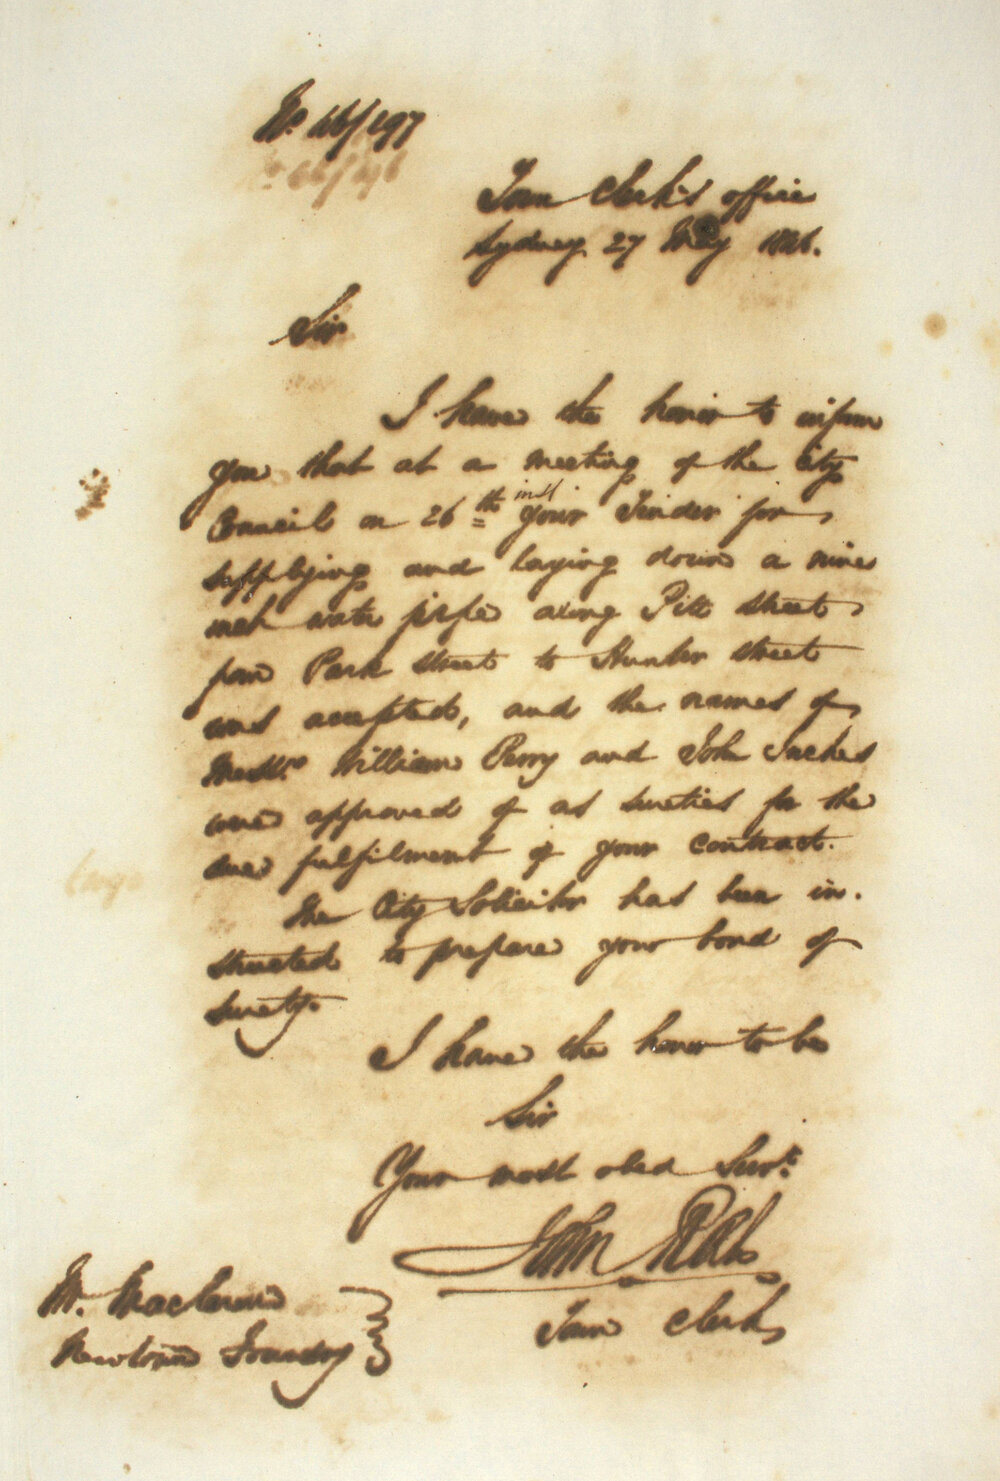 No. 46/197
Town Clerk's office
Sydney 27 May 1846.
Sir
I have the honor to inform
you that at a meeting of the City
Council on 26th inst your Tender for
supplying and laying down a nine
inch water pipe along Pitt street
from Park street to Hunter street
was accepted, and the names of
Messrs. William Perry and John Suckes
were approved of as sureties for the
due fulfilment of your contract.
The City Solicitor has been in.
structed to prepare your bond of
surety.
I have the honor to be
Sir
Your most obed Servt.
John
Town Clerk
Mr. Maclaren
Newtown Foundry